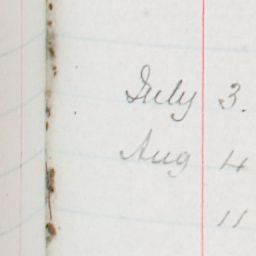 July 3.
Aug 4
11